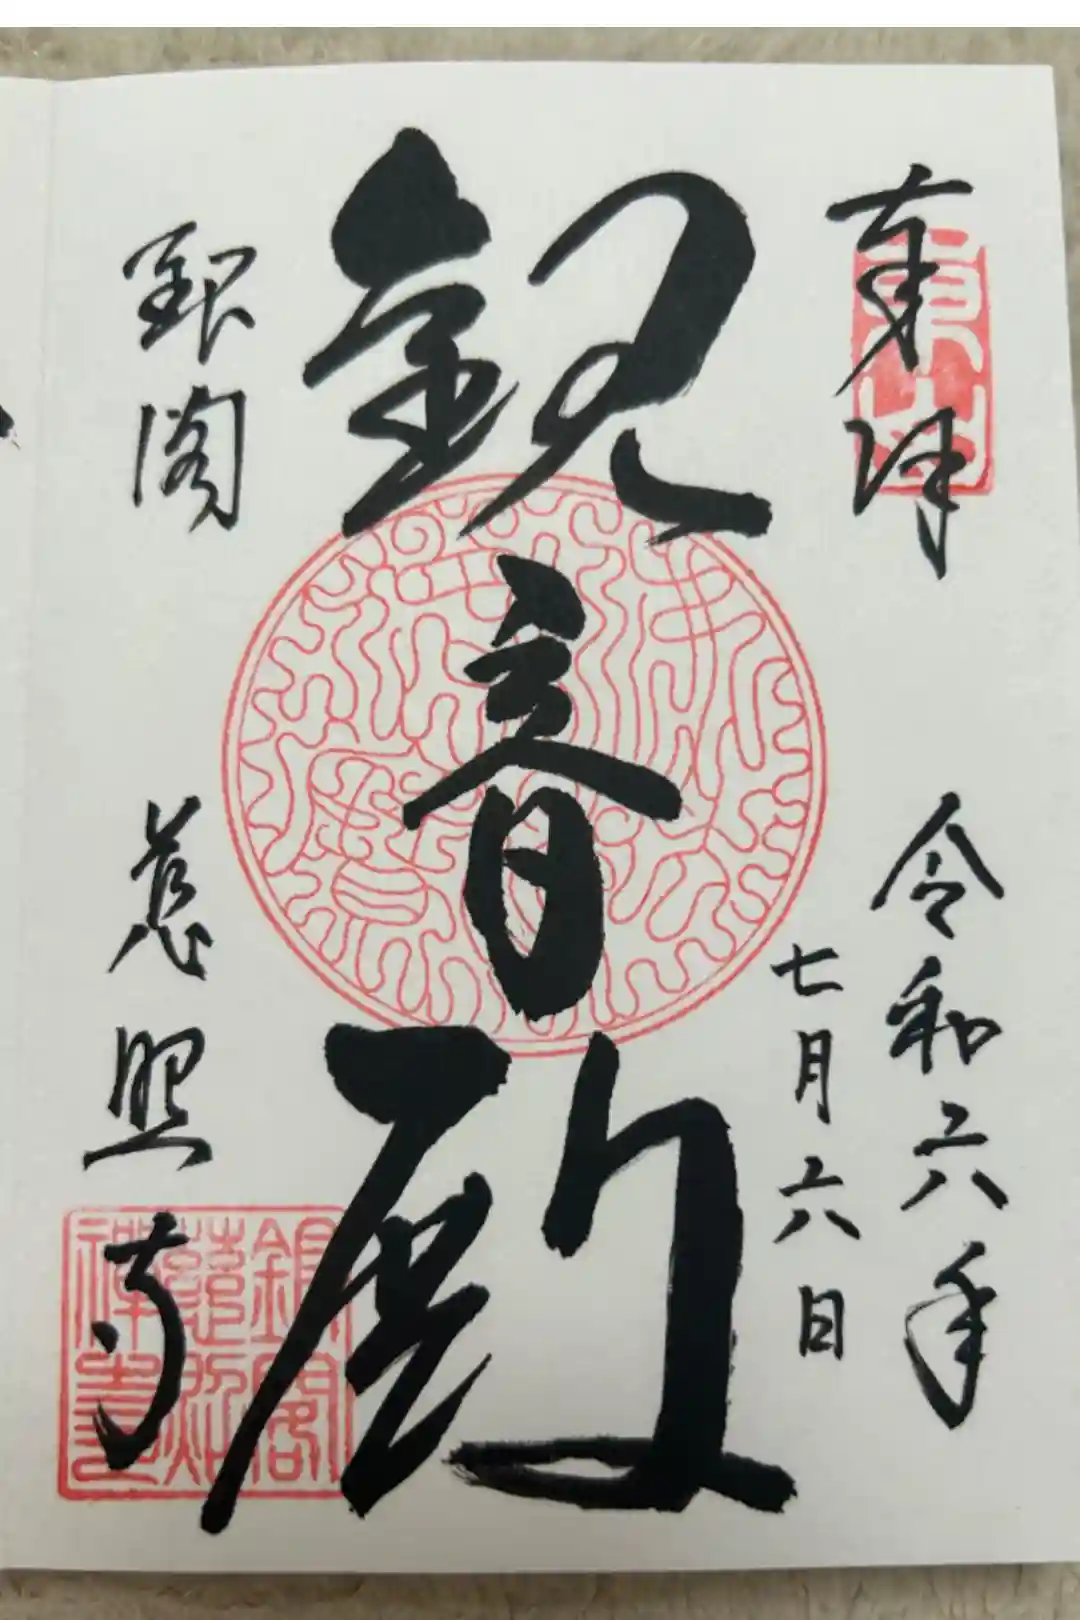 奉拝
東山
令和六年
七月六日
観音殿
銀閣
慈照寺
銀閣
慈照
禅寺